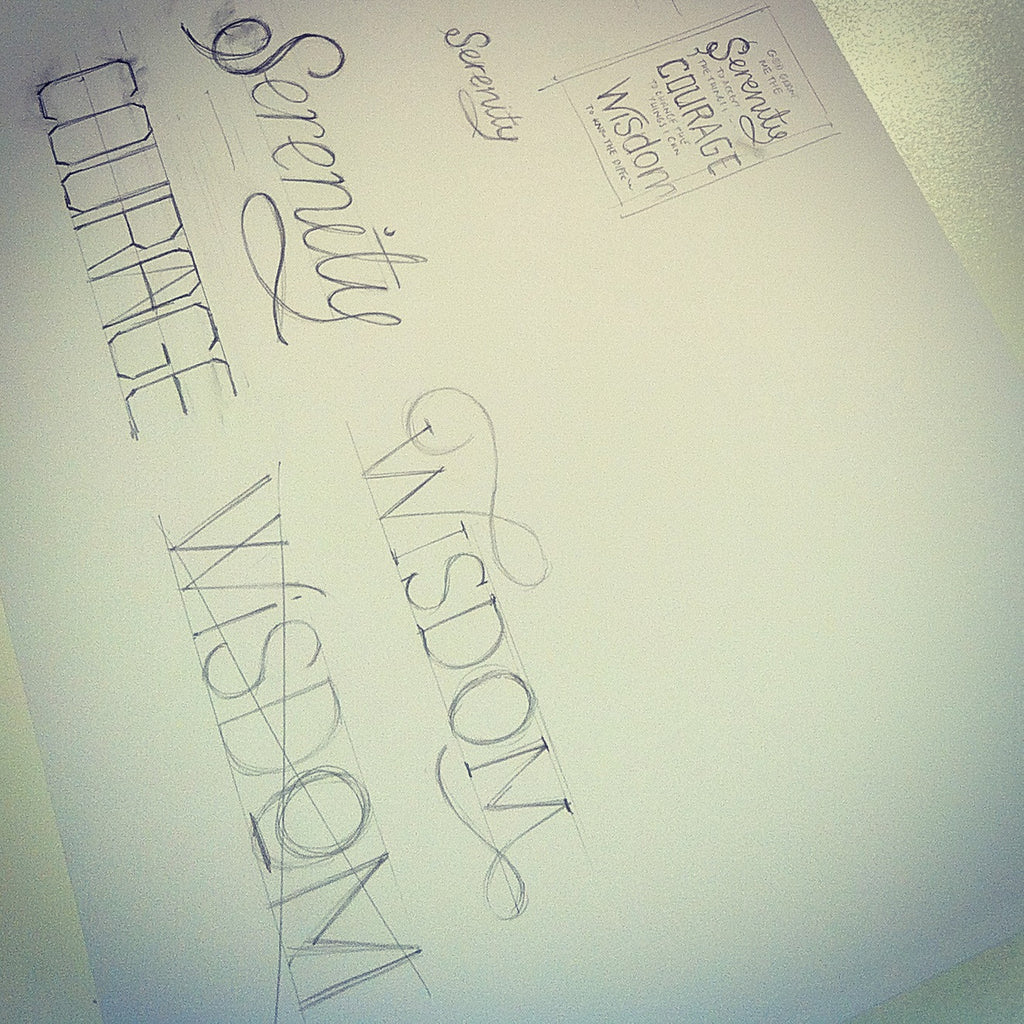 GOD GRANT
ME THE
Serenity
TO ACCEPT
THE THINGS I
COURAGE
TO CHANGE THE
THINGS I CAN
WISdom
TO KNOW THE DIFFEr
Serenity
Serenity
COURAGE
WISDOM
WiSDOM